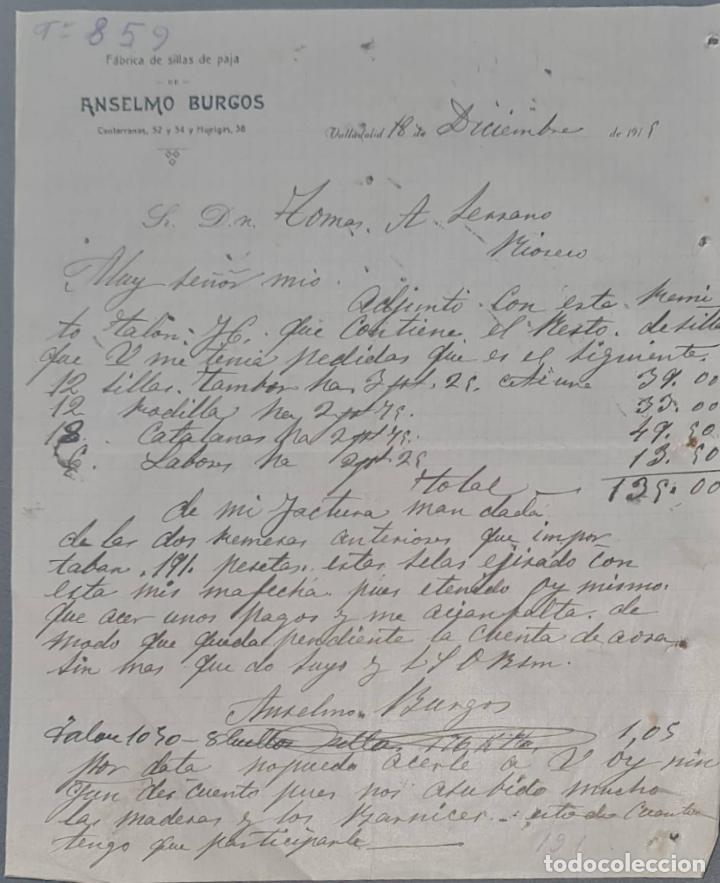 Tª 859
Fábrica de sillas de paja
DE
ANSELMO BURGOS
Cantarranas, 52 y 54 y Huelgas, 38
Valladolid 18 de Diciembre de 1915
Sr. Dn. Tomas. A. Serrano
Rioseco
Muy señor mio.
Adjunto con esta Remi
to talon que contiene el Resto. de silla
que V me tenia pedidas que es el siguiente.
12 sillas. tambor ha 3 pt. 25. 39.00
12 Rodilla ha 2 pt 75 33.00
18. Catalanas ha 2 pt 75 49.50
6. Labores ha 2 pt 25 13.50
total 135.00
de mi factura mandada
de las dos Remesas anteriores que impor
taban. 191. pesetas. estas selas ejirado con
esta mis ma fecha pues etenido oy mismo.
que acer unos pagos y me acian falta. de
modo que queda pendiente la cuenta de aora
sin mas que do suyo y
Anselmo Burgos
Talon 1030 - 8 bultos sillas 176 K 1,05
por data nopuedo acerle a V oy nin
gun des cuento pues nos asubido mucho
las maderas y los Barnices esto es cuanto
tengo que participarle
191
todocoleccion
todocoleccion.net